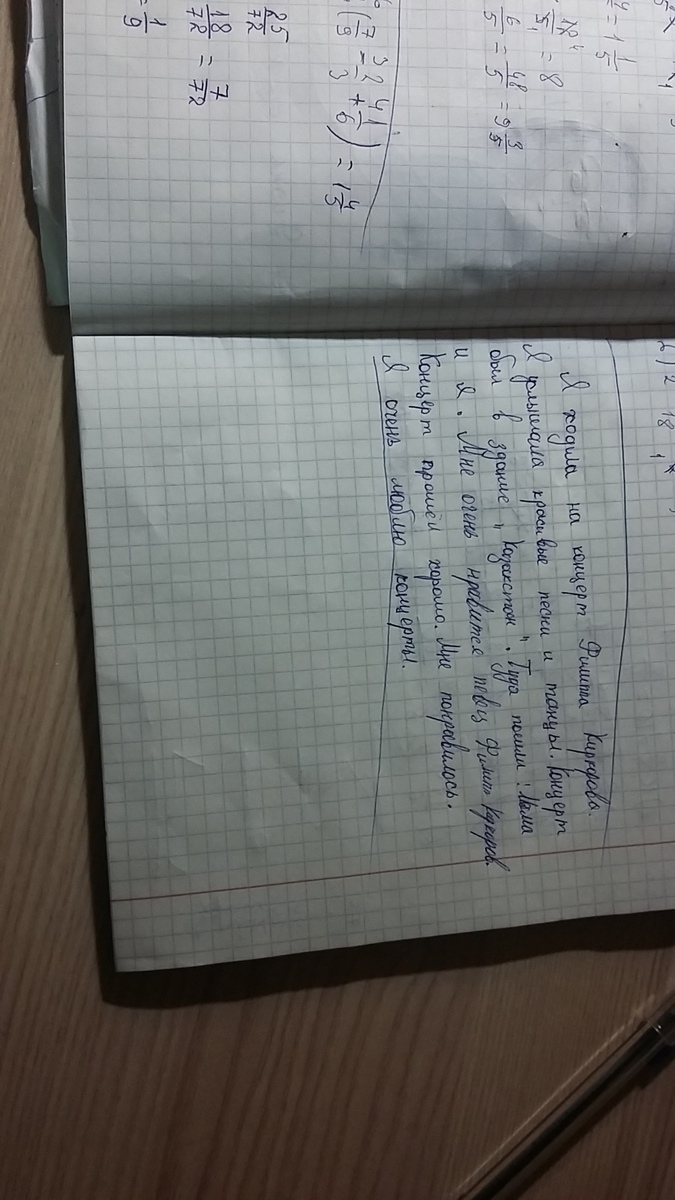 4/5 = 1 1/5
= 8
6/5 = 48/5 = 9 3/5
(7/9 - 2/3 + 1/6) = 1 4/5
25/72
18/72 = 7/72
= 1/9
2) 2 18
Я ходила на концерт Филиппа Киркорова.
Я услышала красивые песни и танцы. Концерт
был в здание "Казахстон". Туда пошли: Мама
и я. Мне очень нравится певец Филипп Киркоров.
Концерт прошёл хорошо. Мне понравилось.
Я очень люблю концерты.